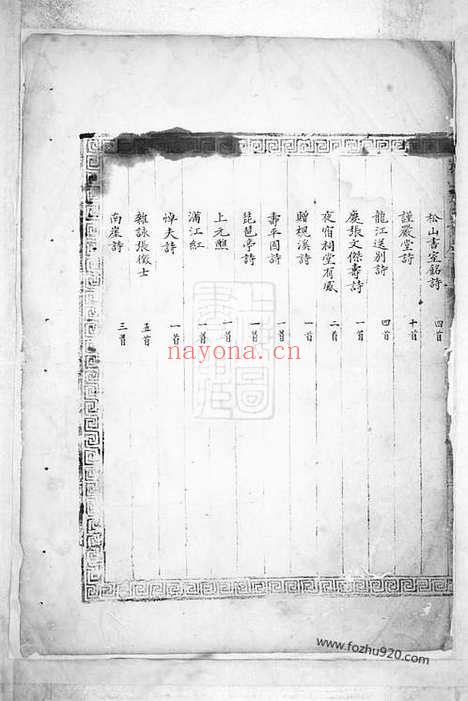 松山書室銘詩 四首
謹嚴堂詩 十首
龍江送別詩 四首
慶張文傑壽詩 一首
夜宿祠堂有感 二首
贈梘溪詩 一首
壽平園詩 一首
琵琶亭詩 一首
上元燕 一首
滿江紅 一首
悼夫詩 一首
雜詠張徵士 五首
南崖詩 三首
nayona.cn
www.fozhu920.com